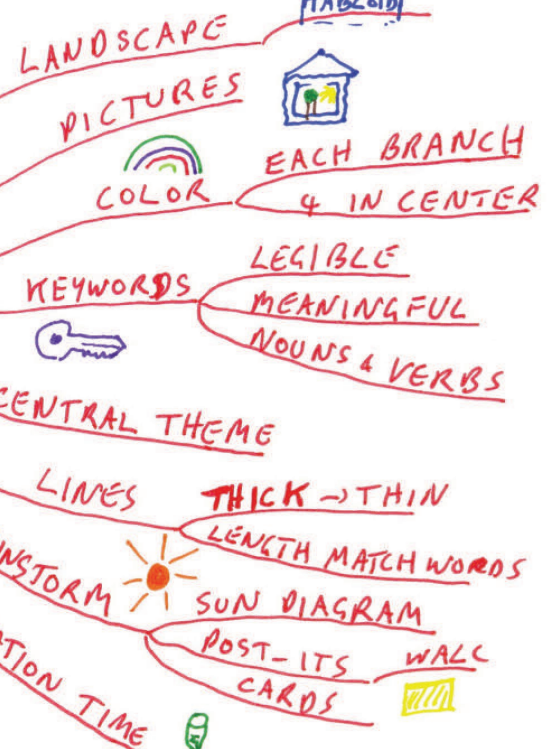 LANDSCAPE
PICTURES
COLOR
EACH BRANCH
4 IN CENTER
KEYWORDS
LEGIBLE
MEANINGFUL
NOUNS & VERBS
CENTRAL THEME
LINES
THICK → THIN
LENGTH MATCH WORDS
NSTORM
SUN DIAGRAM
POST-ITS
WALL
CARDS
TION TIME